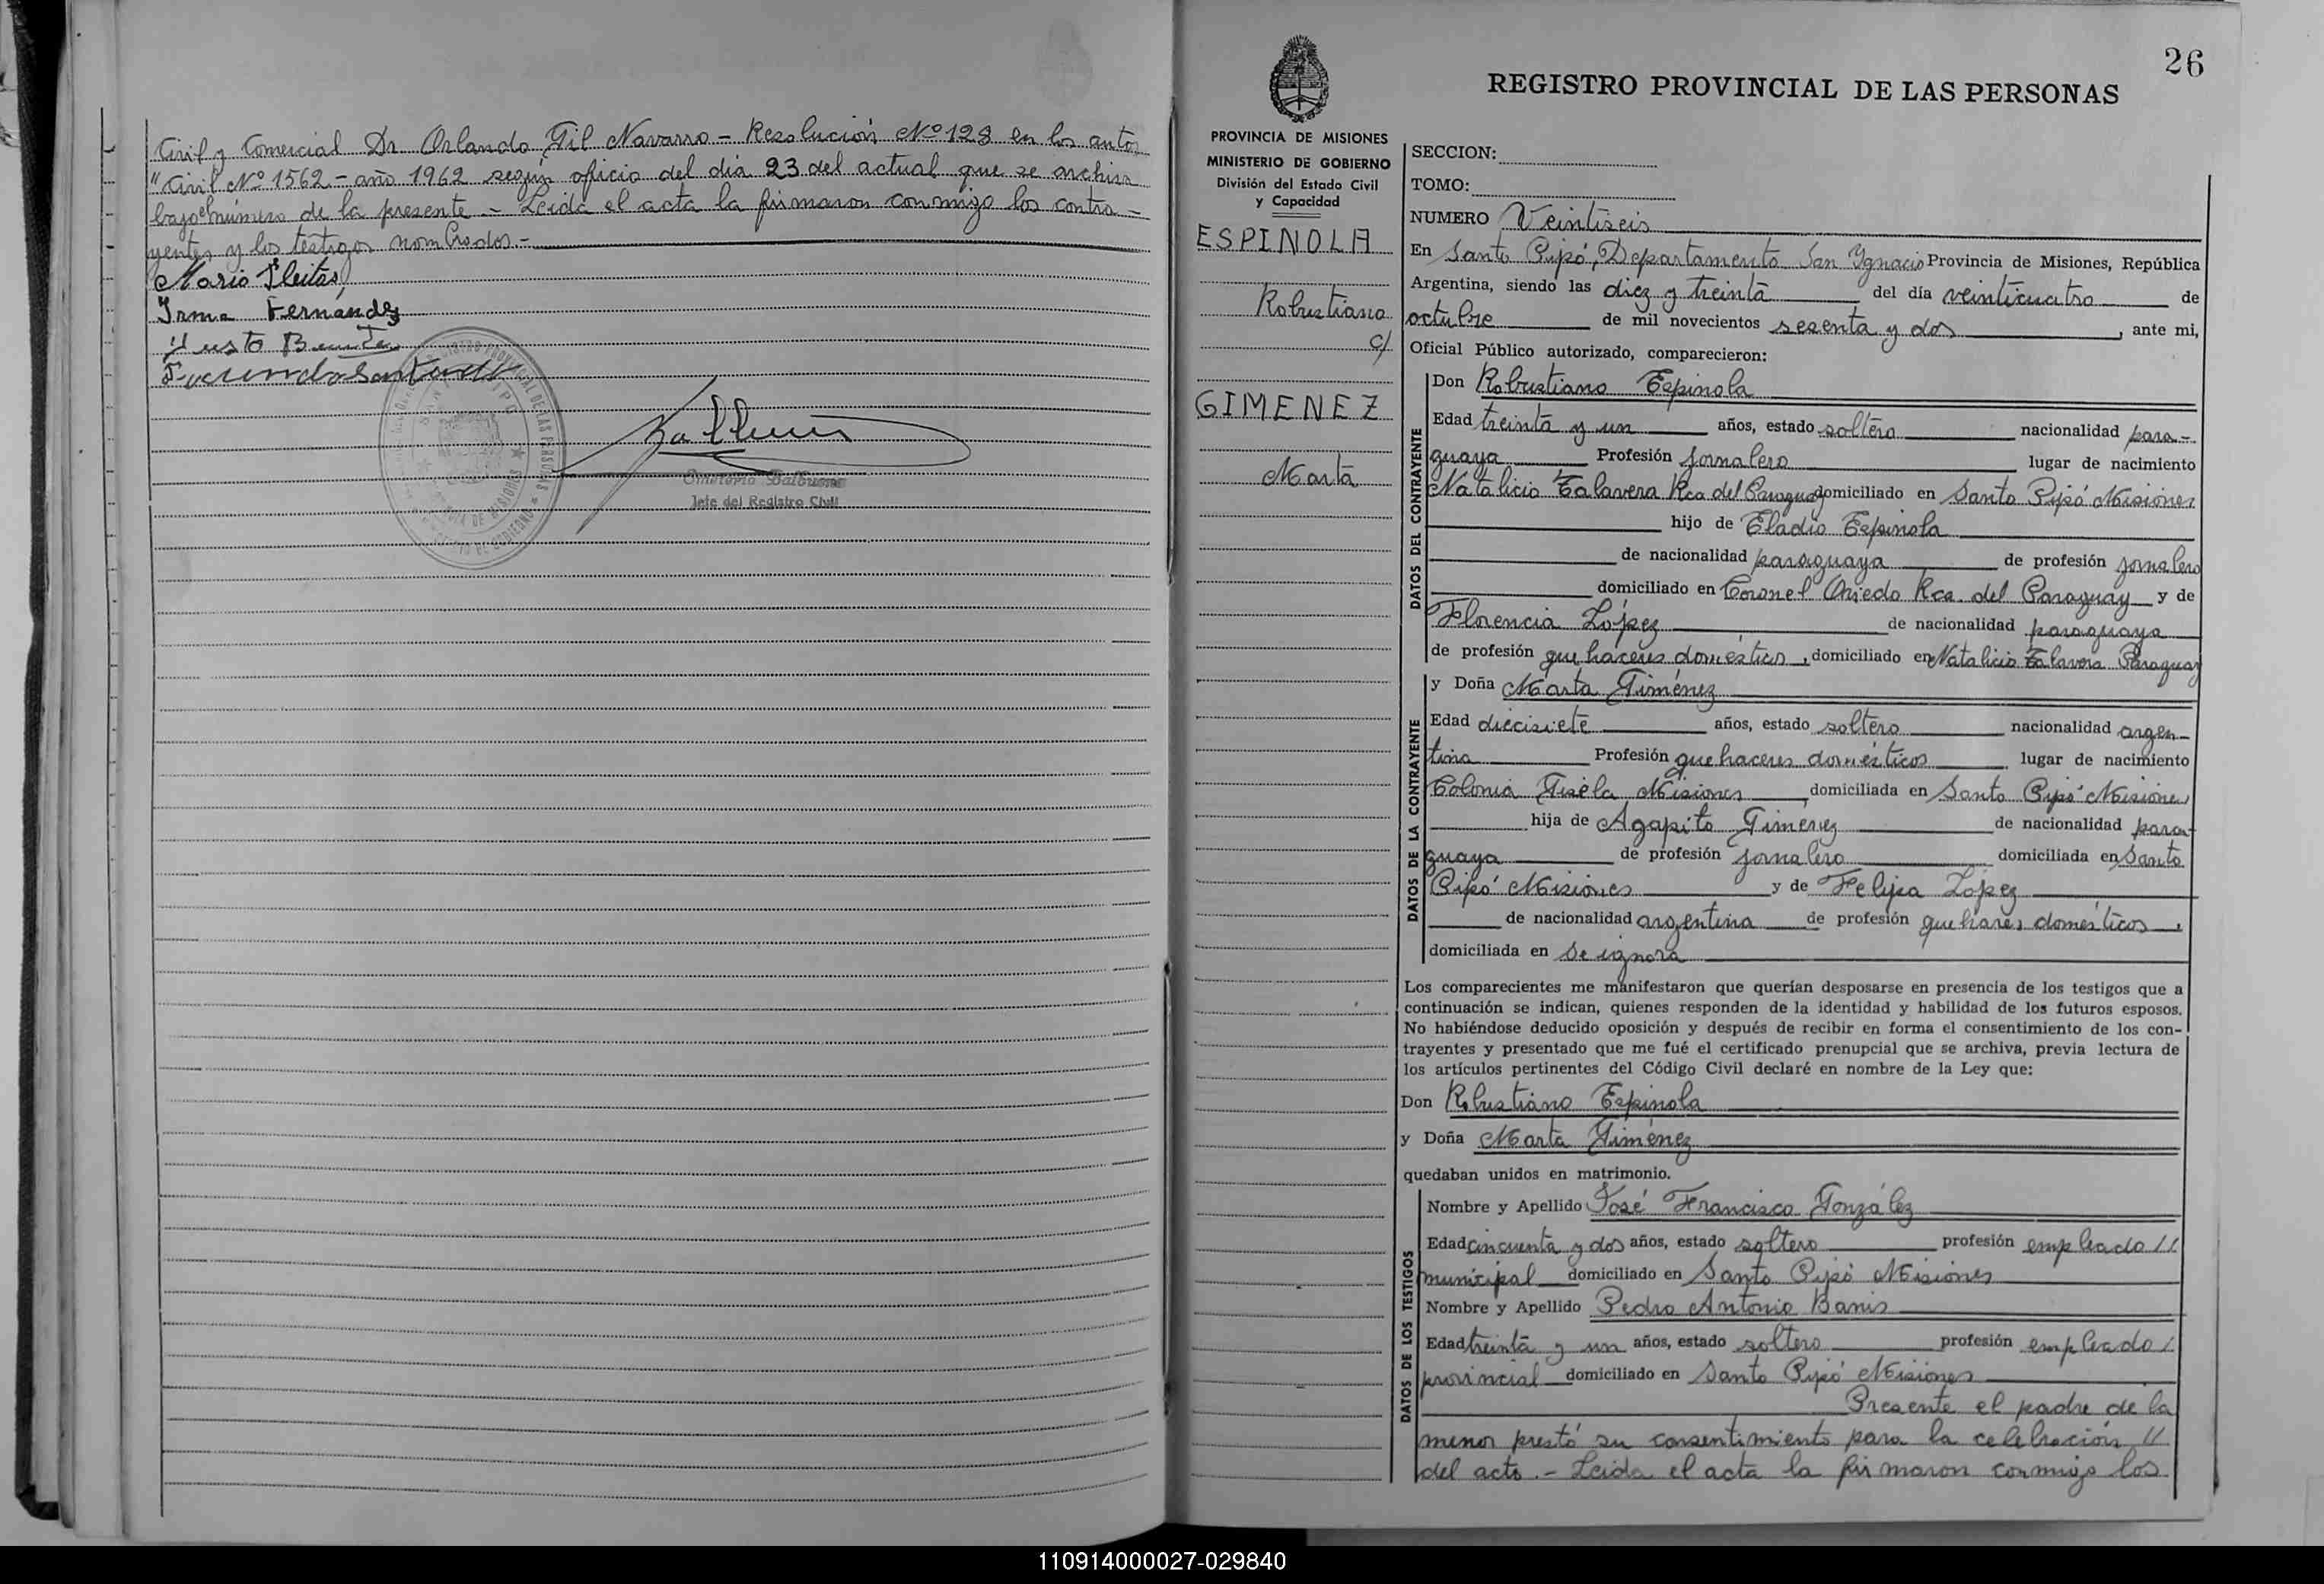 Civil y Comercial Dr Orlando Gil Navarro - Resolución Nº 128 en los autos
"Civil Nº 1562 - año 1962 según oficio del día 23 del actual que se archiva
bajo el número de la presente - Leida el acta la firmaron conmigo los contra-
yentes y los testigos nombrados.-
Mario Fleitas
Irma Fernández
Justo Benitez
Facundo Santa
Jefe del Registro Civil
26
REGISTRO PROVINCIAL DE LAS PERSONAS
PROVINCIA DE MISIONES
MINISTERIO DE GOBIERNO
División del Estado Civil
y Capacidad
ESPINOLA
Robustiano
c/
GIMENEZ
Marta
SECCION:
TOMO:
NUMERO Veintiseis
En Santo Pipó, Departamento San Ygnacio Provincia de Misiones, República
Argentina, siendo las diez y treinta del día veinticuatro de
octubre de mil novecientos sesenta y dos, ante mi,
Oficial Público autorizado, comparecieron:
DATOS DEL CONTRAYENTE
Don Robustiano Espinola
Edad treinta y un años, estado soltero nacionalidad para-
guaya Profesión jornalero lugar de nacimiento
Natalicio Talavera Rca del Paraguay domiciliado en Santo Pipó Misiones
hijo de Eladio Espinola
de nacionalidad paraguaya de profesión jornalero
domiciliado en Coronel Oviedo Rca. del Paraguay y de
Florencia López de nacionalidad paraguaya
de profesión que haceres domésticos, domiciliado en Natalicio Talavera Paraguay
DATOS DE LA CONTRAYENTE
y Doña Marta Giménez
Edad diecisiete años, estado soltero nacionalidad argen-
tina Profesión que haceres domésticos lugar de nacimiento
Colonia Gisela Misiones, domiciliada en Santo Pipó Misiones
hija de Agapito Gimenez de nacionalidad para-
guaya de profesión jornalero domiciliada en Santo
Pipó Misiones y de Felipa López
de nacionalidad argentina de profesión que hares domésticos,
domiciliada en se ignora
Los comparecientes me manifestaron que querían desposarse en presencia de los testigos que a
continuación se indican, quienes responden de la identidad y habilidad de los futuros esposos.
No habiéndose deducido oposición y después de recibir en forma el consentimiento de los con-
trayentes y presentado que me fué el certificado prenupcial que se archiva, previa lectura de
los artículos pertinentes del Código Civil declaré en nombre de la Ley que:
Don Robustiano Espinola
y Doña Marta Giménez
quedaban unidos en matrimonio.
DATOS DE LOS TESTIGOS
Nombre y Apellido José Francisco González
Edad cincuenta y dos años, estado soltero profesión empleado //
municipal domiciliado en Santo Pipó Misiones
Nombre y Apellido Pedro Antonio Banis
Edad treinta y un años, estado soltero profesión empleado /
provincial domiciliado en Santo Pipó Misiones
Presente el padre de la
menor prestó su consentimiento para la celebración //
del acto.- Leida el acta la firmaron conmigo los
110914000027-029840